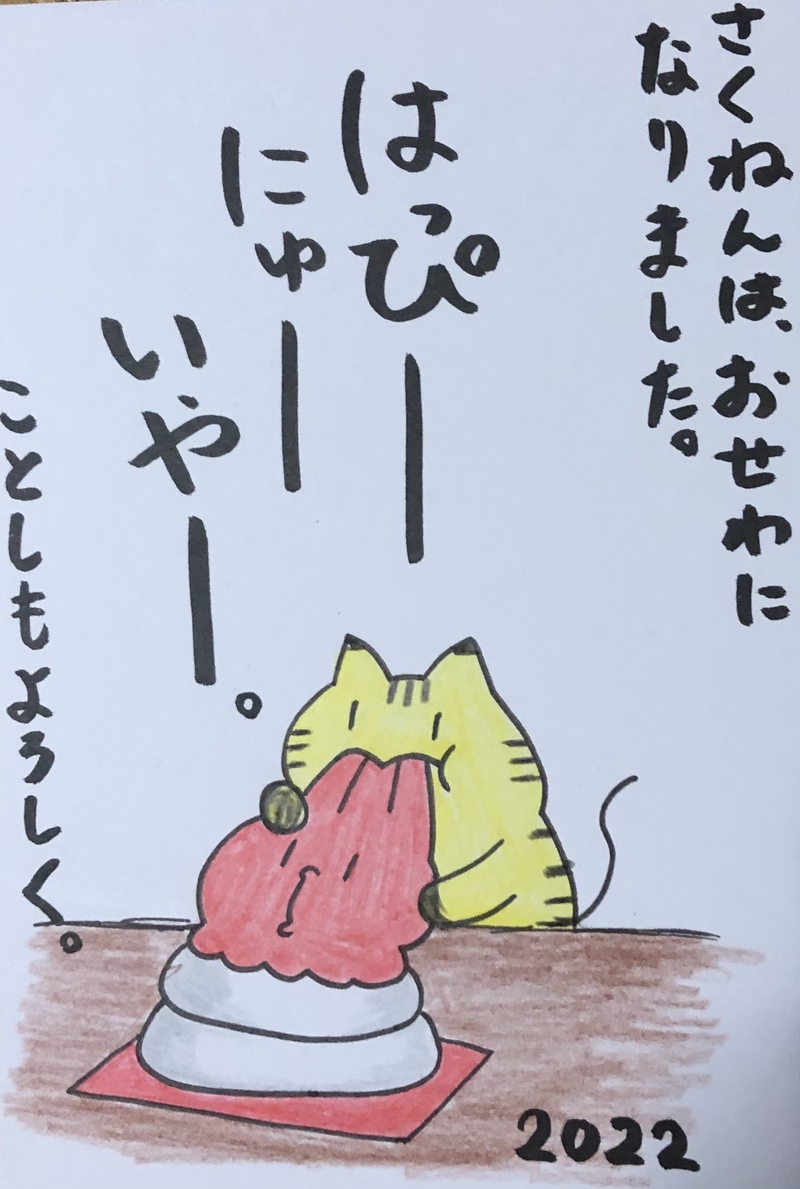 さくねんは、おせわに
なりました。
はっぴー
にゅー
いやー。
ことしもよろしく。
2022